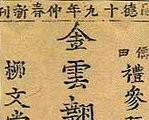 德十九年仲春新刊
僊田禮參
金雲翹
桺文堂